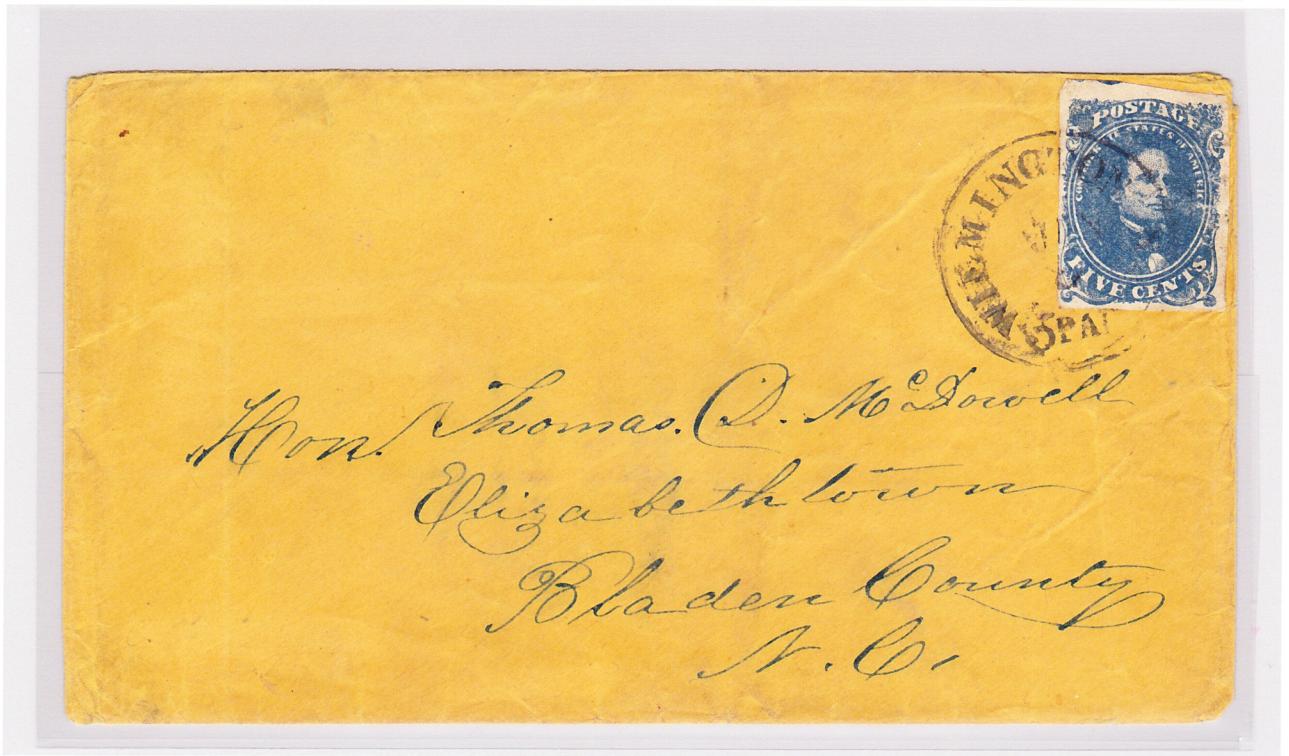 POSTAGE
CONFEDERATE STATES OF AMERICA
FIVE CENTS
WILMINGTON
5 PAI
Hon. Thomas. D. McDowell
Elizabethtown
Bladen County
N. C.